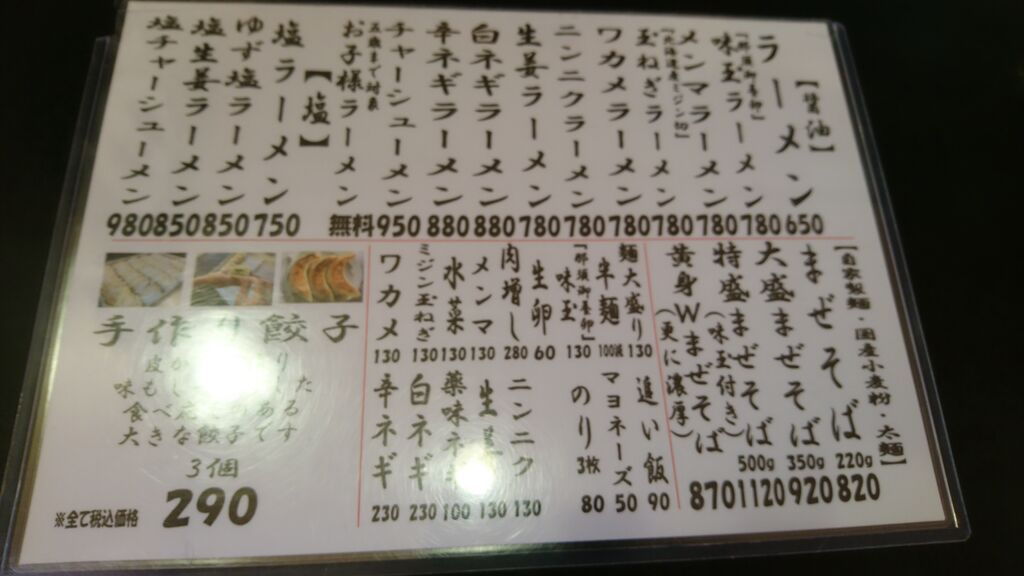 【醤油】
ラーメン 650
「那須御養卵」
味玉ラーメン 780
メンマラーメン 780
【北海道産ミジン切】
玉ねぎラーメン 780
ワカメラーメン 780
ニンニクラーメン 780
生姜ラーメン 780
白ネギラーメン 880
辛ネギラーメン 880
チャーシューメン 950
五歳まで対象
お子様ラーメン 無料
【塩】
塩ラーメン 750
ゆず塩ラーメン 850
塩生姜ラーメン 850
塩チャーシューメン 980
【自家製麺・国産小麦粉・太麺】
まぜそば 220g 820
大盛まぜそば 350g 920
特盛まぜそば 500g 1120
(味玉付き)
黄身Wまぜそば 870
(更に濃厚)
麺大盛り 130
半麺 100減
「那須御養卵」
味玉 130
生卵 60
肉増し 280
メンマ 130
水菜 130
ミジン玉ねぎ 130
ワカメ 130
追い飯 90
マヨネーズ 50
のり 3枚 80
ニンニク 130
生姜 130
薬味ネギ 100
白ネギ 230
辛ネギ 230
手作り餃子
3個
290
※全て税込価格